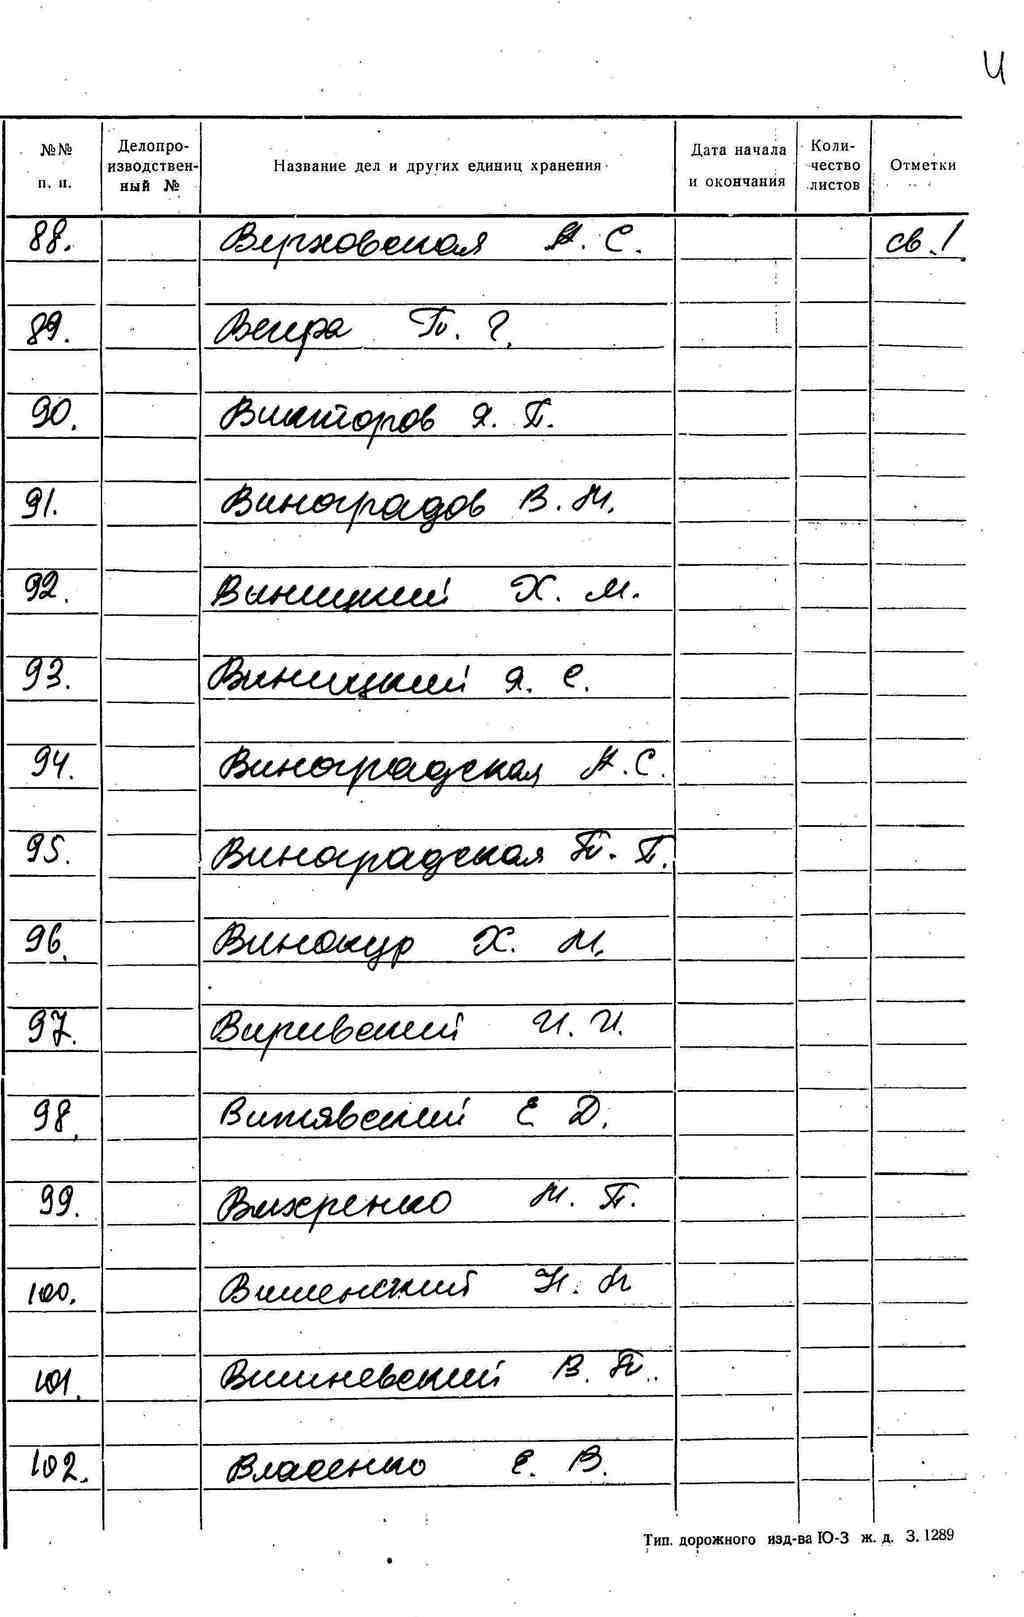 №№ п. п. Делопроизводственный № Название дел и других единиц хранения Дата начала и окончания Количество листов Отметки
88. Верховская А. С. св. 1
89.
90. Викторов Я. П.
91. Виноградов В. М.
92. Выницкий Х. М.
93. Виницкий Я. С.
94. Виноградская А. С.
95. Виноградская П.
96. Винокур Х. М.
97. Виривский И. И.
98. Витявский Е. Д.
99. Вихренко М. П.
100. Вишенский Н. М
101. Вишневский В.
102. Власенко Е. В.
Тип. дорожного изд-ва Ю-З ж. д. З. 1289